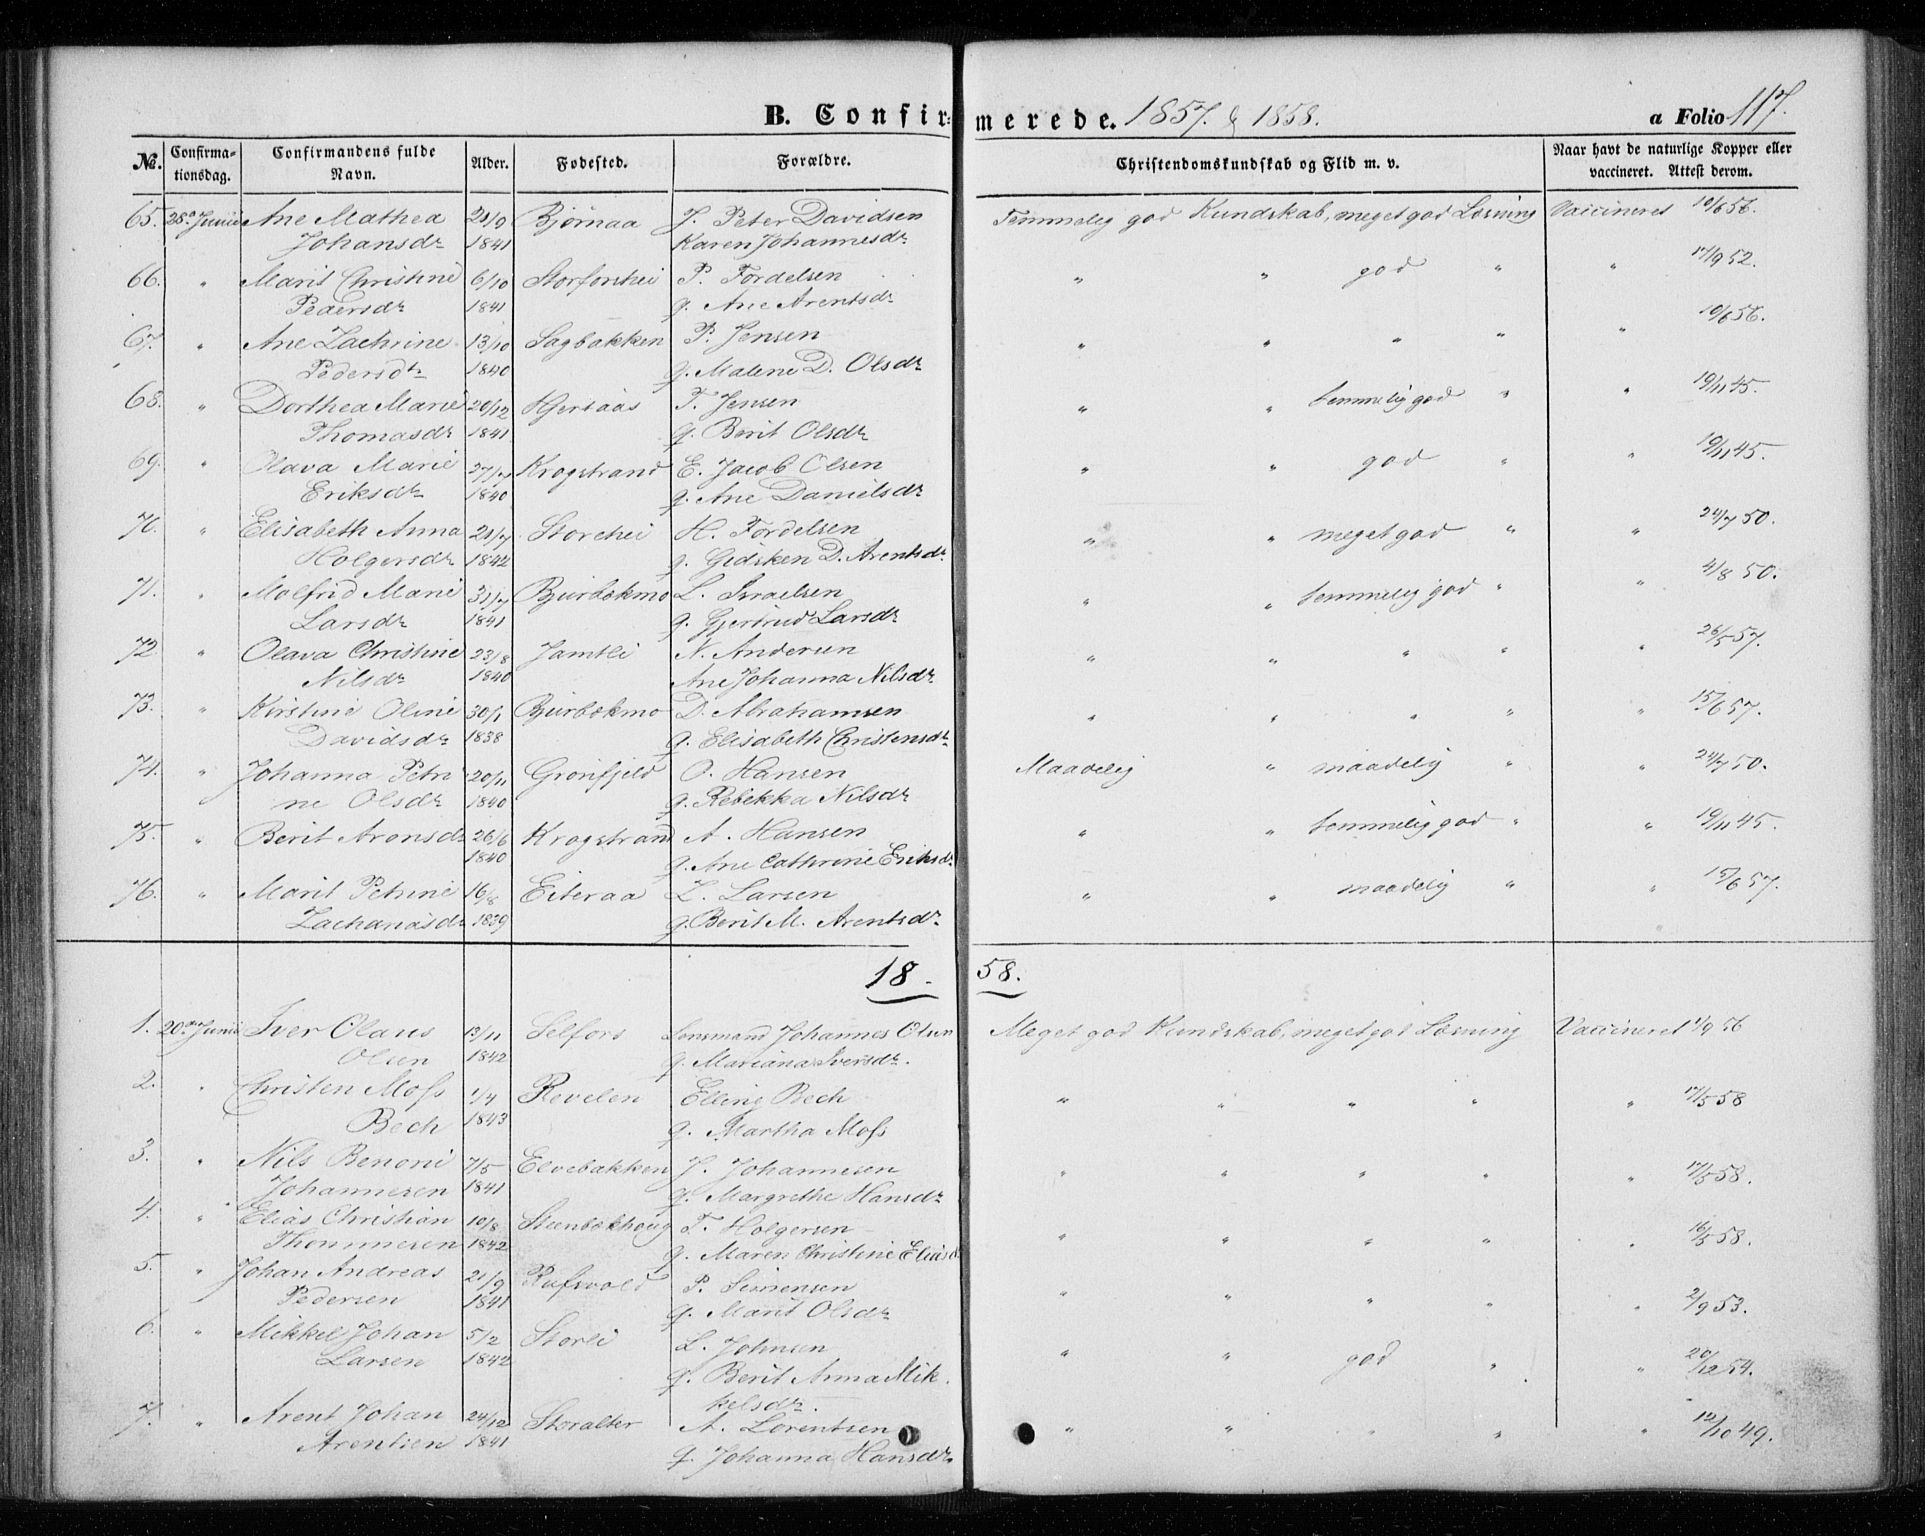 B. Confir= merede. 1857. & 1858. a Folio 117.
No. Confirma-tionsdag. Confirmandens fulde Navn. Alder. Fødested. Forældre. Christendomskundskab og Flid m. v. Naar havt de naturlige Kopper eller vaccineret. Attest derom.
65. 28de Junii Ane Mathea 21/9 Bjørnaa J. Peter Davidsen Temmelig god Kundskab, meget god Læsning Vaccineret 10/6 56.
Johansdr 1841 Karen Johannesdr
66. " Marit Christine 6/10 Storforshei P. Fordelsen " " god " " 17/9 52.
Pedersdr 1841 q. Ane Arentsdr
67. " Ane Zachrine 13/10 Sagbakken P. Jensen " " " " " 10/6 56.
Pedersdr 1840 q. Malene D. Olsdr
68. " Dorthea Marie 20/12 Hjertaas T. Jensen " " temmelig god " " 19/11 45.
Thomasdr 1841 q. Berit Olsdr
69. " Olava Marie 27/7 Krogstrand E. Jacob Olsen " " god " " 19/11 45.
Eriksdr 1840 q. Ane Danielsdr
70. " Elisabeth Anna 21/7 Storhei H. Fordelsen " " meget god " " 24/7 50.
Holgersdr 1842 q. Gidsken D. Arentsdr
71. " Molfrid Marie 31/7 Bjurbækmo L. Israelsen " " temmelig god " " 4/8 50.
Larsdr 1841 q. Gjertrud Larsdr
72. " Olava Christine 23/8 Jamtli N. Andersen " " " " " 26/5 57.
Nilsdr 1840 Ane Johanna Nilsdr
73. " Kirstine Oline 30/1 Bjurbækmo D. Abrahamsen " " " " " 15/6 57.
Davidsdr 1838 q. Elisabeth Christensdr
74. " Johanna Petri 20/11 Grønfjeld O. Hansen Maadelig " maadelig " " 24/7 50.
ne Olsdr 1840 q. Rebekka Nilsdr
75. " Berit Aronsdr 26/6 Krogstrand A. Hansen " " temmelig god " " 19/11 45.
1840 q. Ane Cathrine Eriksdr
76. " Marit Petrine 16/8 Eiteraa Z. Larsen " " maadelig " " 15/6 57.
Zachariasdr 1839 q. Berit M. Arentsdr
18. 58.
1. 20de Junii Iver Olaus 13/11 Selfors Lensmand Johannes Olsen Meget god Kundskab, meget god Læsning Vaccineret 1/9 56
Olsen 1842 q. Mariana Iversdr.
2. " Christen Moss 1/4 Revelen Elling Bech " " " " " 17/5 58
Bech 1843 q. Martha Moss
3. " Nils Benoni 7/5 Elvebakken J. Johannesen " " " " " 17/5 58.
Johannesen 1841 q. Margrethe Hansdr
4. " Elias Christian 10/8 Steenbækhoug T. Holgersen " " " " " 16/5 58.
Thommesen 1842 q. Maren Christine Eliasd
5. " Johan Andreas 21/9 Rufsvold P. Simensen " " " " " 2/9 53.
Pedersen 1841 q. Marit Olsdr
6. " Mikkel Johan 5/2 Storli L. Johnsen " " god " " 20/12 54.
Larsen 1842 q. Berit Anna Mik
kelsdr.
7. " Arent Johan 24/12 Storalter A. Lorentsen " " " " " 12/10 49.
Arentsen 1841 q. Johanna Hansdr.